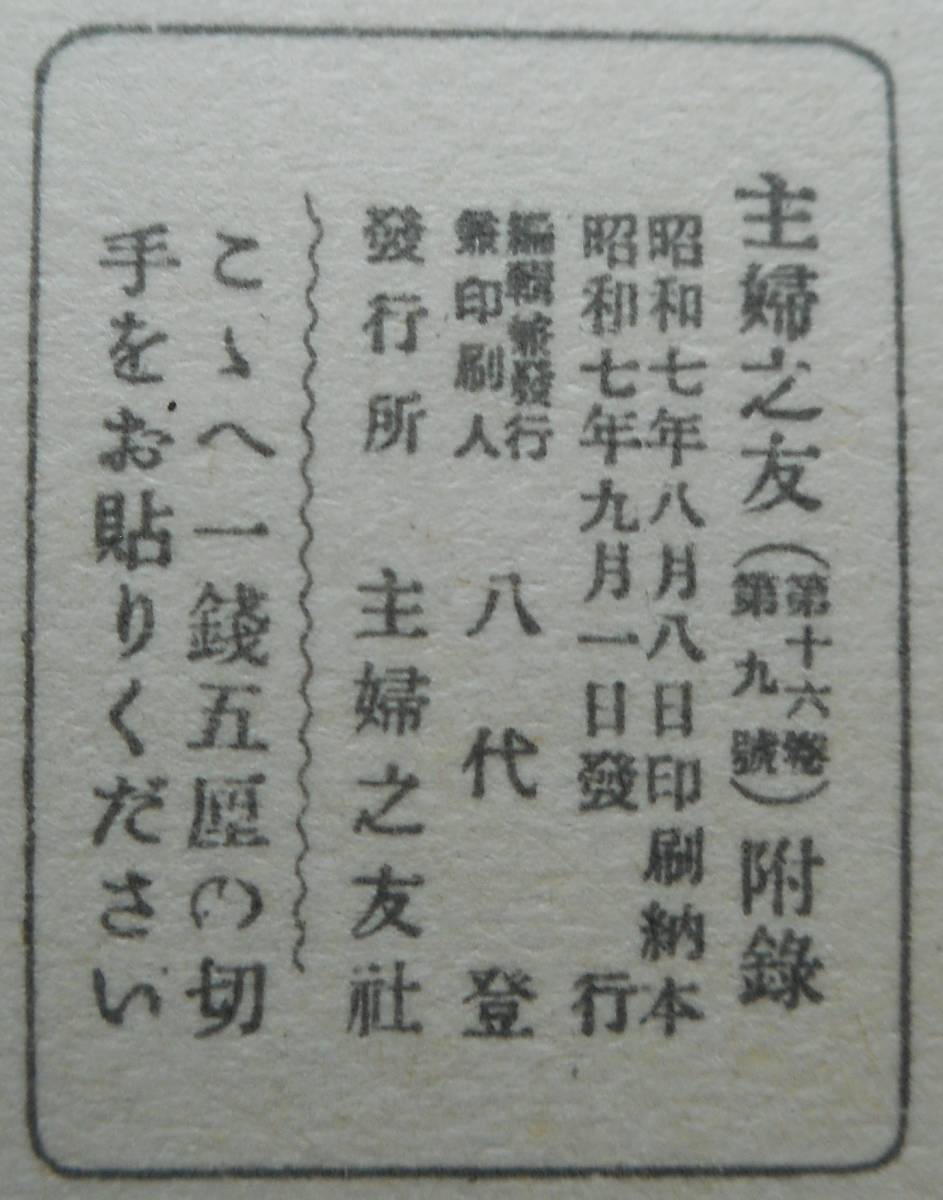 主婦之友（第十六卷第九號）附錄
昭和七年八月八日印刷納本
昭和七年九月一日發行
編輯兼發行兼印刷人 八代登
發行所 主婦之友社
こゝへ一錢五厘の切
手をお貼りください